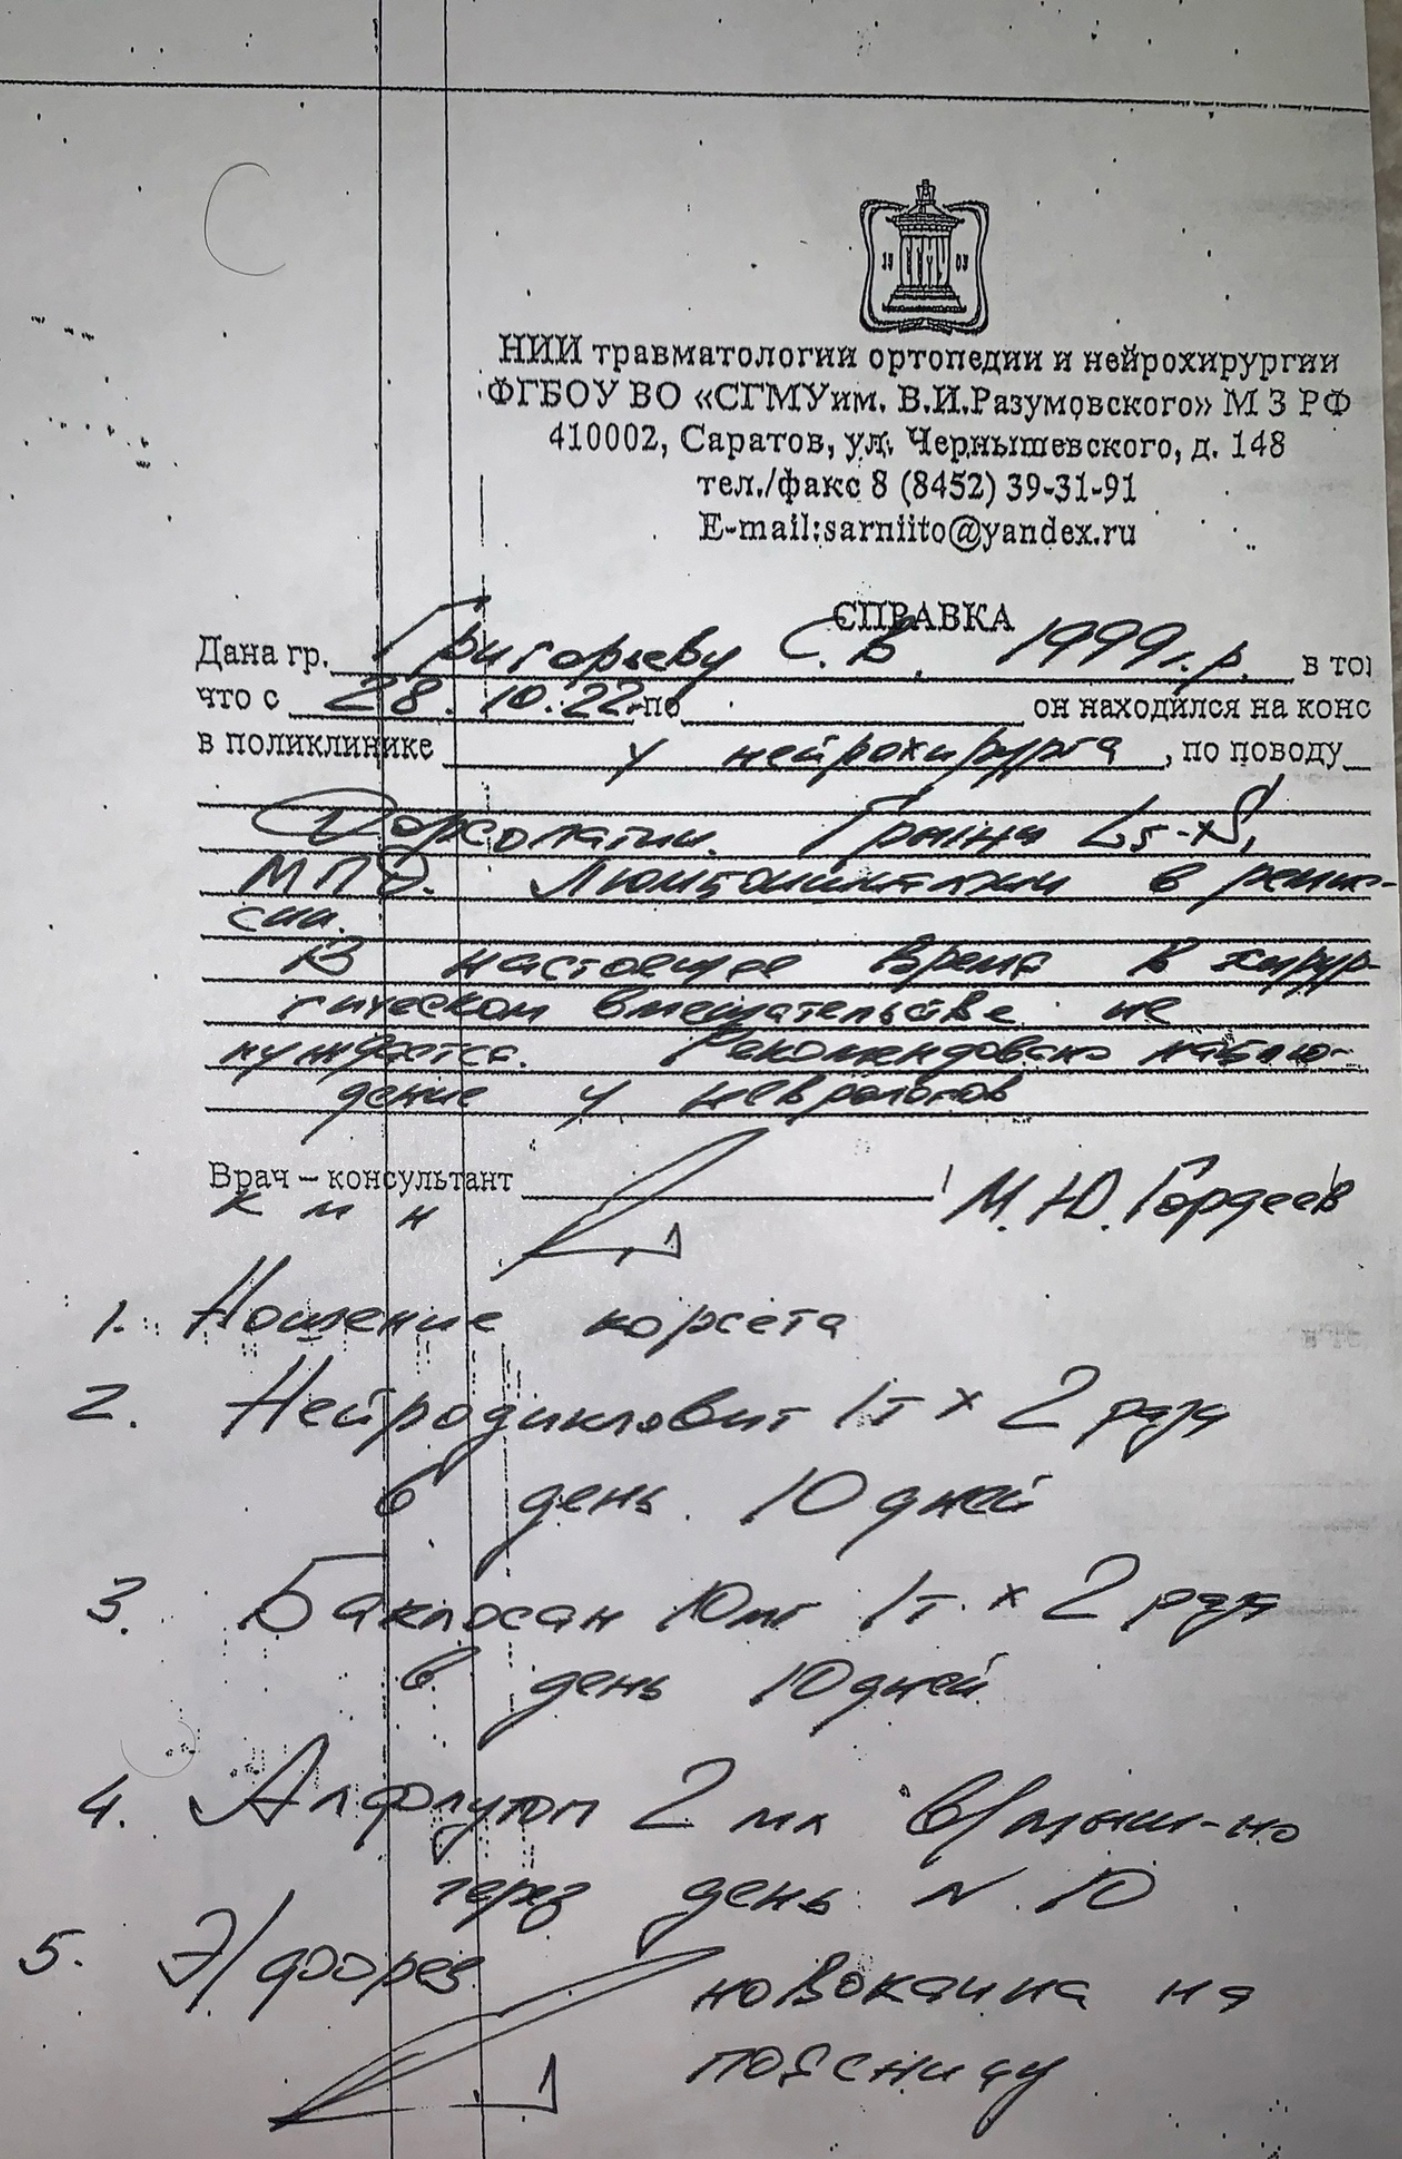 19 СГМУ 09
НИИ травматологии ортопедии и нейрохирургии
ФГБОУ ВО «СГМУим. В.И.Разумовского» М З РФ
410002, Саратов, ул. Чернышевского, д. 148
тел./факс 8 (8452) 39-31-91
E-mail:sarniito@yandex.ru
СПРАВКА
Дана гр. Григорьеву С.В. 1999г.р. в то
что с 28.10.22 по он находился на конс
в поликлинике у нейрохирурга, по поводу
Дорсопатии. Грыжи L5-S1
МПД. Люмбоишиалгии в ремис-
сии.
В настоящее время в хирур-
гическом вмешательстве не
нуждается. Рекомендовано наблю-
дение у неврологов
Врач – консультант М.Ю. Гордеев
к м н
1. Ношение корсета
2. Нейродикловит 1т х 2 раза
в день. 10 дней
3. Баклосан 10мг 1т. х 2 раза
в день 10 дней
4. Алфлутоп 2 мл в/мыш-но
через день N. 10
5. Э/форез новокаина на
поясницу